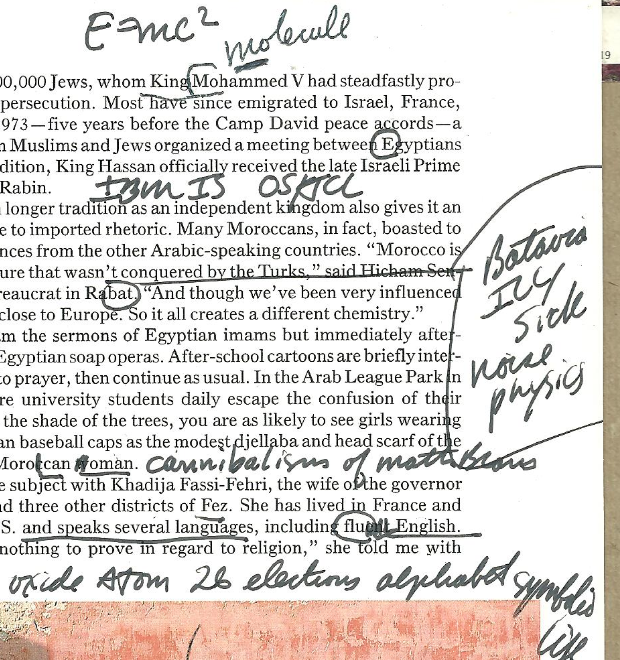 E=mc²
molecule
19
00,000 Jews, whom King Mohammed V had steadfastly pro-
persecution. Most have since emigrated to Israel, France,
973—five years before the Camp David peace accords—a
n Muslims and Jews organized a meeting between Egyptians
dition, King Hassan officially received the late Israeli Prime
Rabin.
IBM IS
n longer tradition as an independent kingdom also gives it an
e to imported rhetoric. Many Moroccans, in fact, boasted to
nces from the other Arabic-speaking countries. "Morocco is
ure that wasn't conquered by the Turks," said Hicham Sen-
reaucrat in Rabat. "And though we've been very influenced
close to Europe. So it all creates a different chemistry."
m the sermons of Egyptian imams but immediately after-
Egyptian soap operas. After-school cartoons are briefly inter-
to prayer, then continue as usual. In the Arab League Park in
re university students daily escape the confusion of their
the shade of the trees, you are as likely to see girls wearing
an baseball caps as the modest djellaba and head scarf of the
Moroccan woman.
cannibalism of math
e subject with Khadija Fassi-Fehri, the wife of the governor
nd three other districts of Fez. She has lived in France and
S. and speaks several languages, including fluent English.
nothing to prove in regard to religion," she told me with
Batavia
ILL
Side
noise
physics
oxide Atom 26 elections alphabet symbols